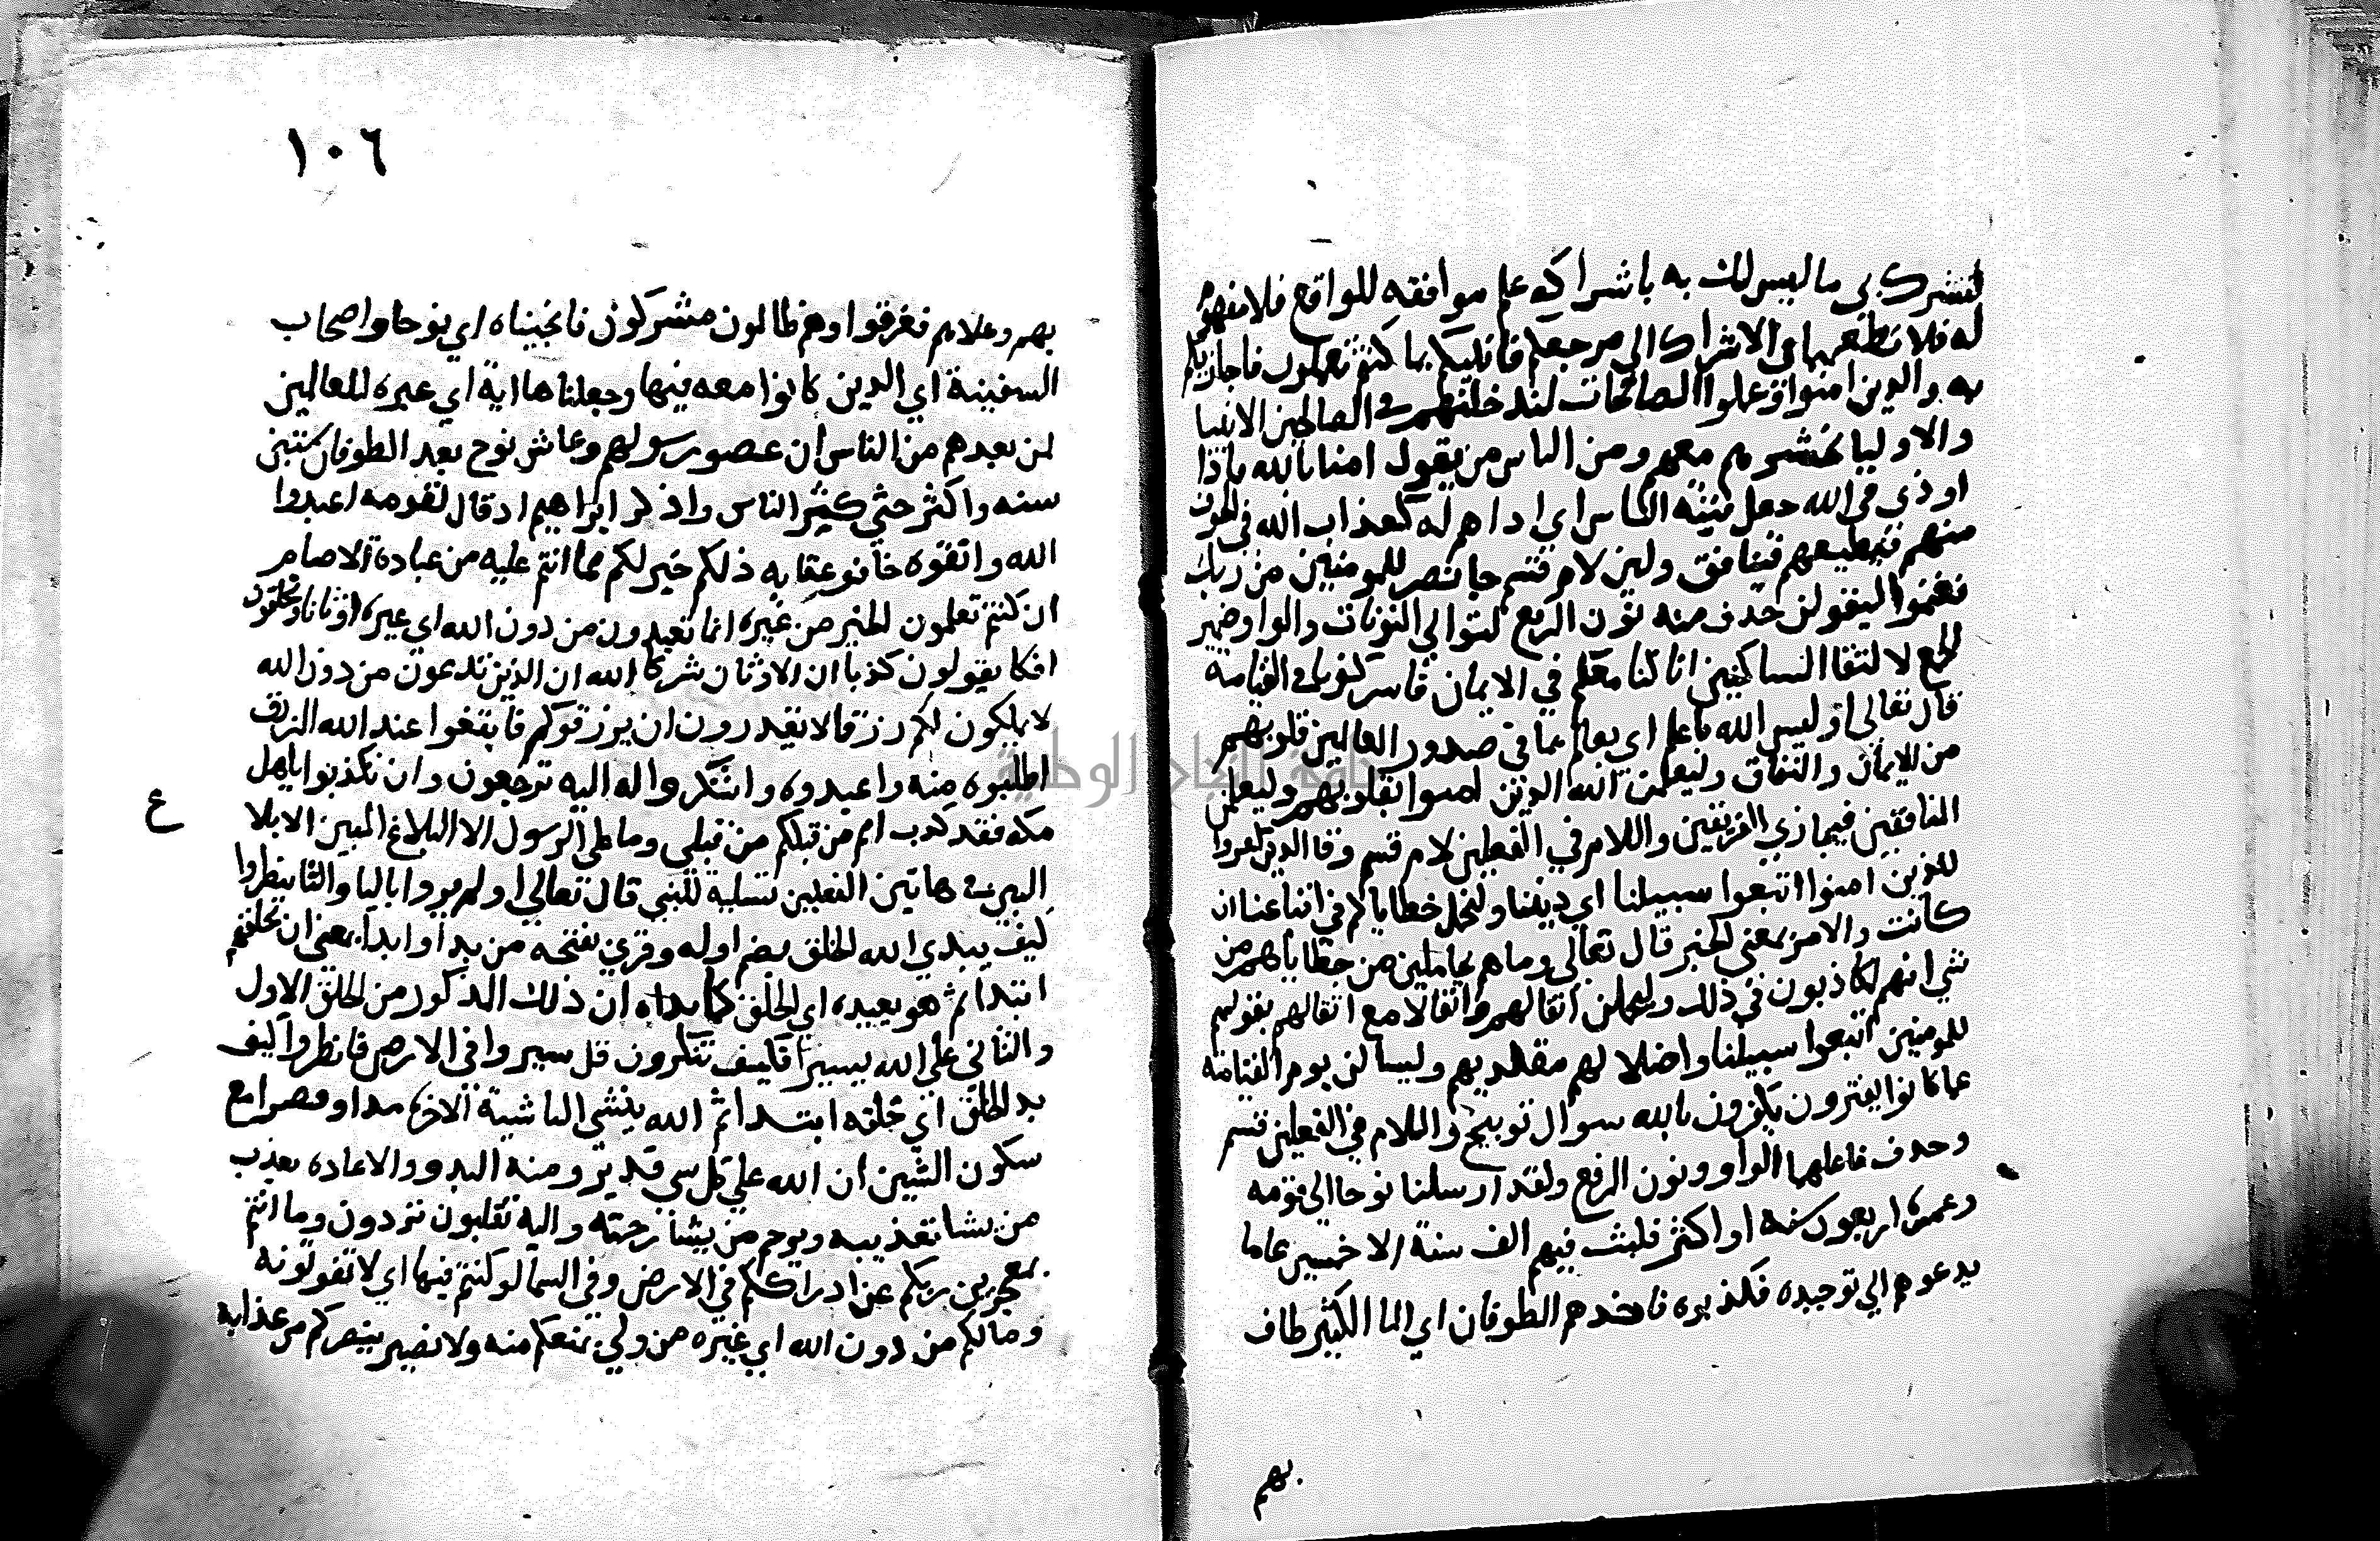 لتشرك بي ما ليس لك به باشراكه علم موافقه للواقع فلا مفهوم
له فلا تطعهما في الاشراك الي مرجعكم فانبيكم بما كنتم تعملون فاجازيكم
به والدين امنوا وعملوا الصالحات لندخلنهم في الصالحين الانبيا
والاوليا بحشرهم معهم ومن الناس من يقول امنا بالله فاذا
اوذي في الله جعل فتنه الناس اي اداهم له كعذاب الله في الخوف
منهم فيطيعهم فينافق ولين لام قسم جا نصر للمومنين من ربك
فغنموا ليقولن حدف منه نون الرفع لتوالي النونات والواو ضمير
الجمع لالتقا الساكنين انا كنا معكم في الايمان فاشركونا في القيامه
قال تعالى اوليس الله باعلم اي بعالم بما في صدور العالمين قلوبهم
من الايمان والنفاق وليعلمن الله الدين امنوا بقلوبهم وليعلمن
المنافقين فيجازي الفريقين واللام في الفعلين لام قسم وقال الدين كفروا
للذين امنوا اتبعوا سبيلنا اي ديننا ولنحمل خطاياكم في اتباعنا ان
كانت والامر بمعني الخبر قال تعالى وما هم بحاملين من خطاياهم من
شي انهم لكاذبون في ذلك وليحملن اثقالهم واثقالا مع اثقالهم بقولهم
للمومنين اتبعوا سبيلنا واضلالهم مقلديهم وليسالن يوم القيامه
عما كانوا يفترون يكذبون بالله سوال توبيخ واللام في الفعلين قسم
وحدف فاعلهما الواو ونون الرفع ولقد ارسلنا نوحا الى قومه
وعمره اربعون سنه او اكثر فلبث فيهم الف سنة الا خمسين عاما
يدعوهم الي توحيده فكذبوه فاخدهم الطوفان اي الما الكثير طاف
بهم
١٠٦
بهم وعلاهم فغرقوا وهم ظالمون مشركون فانجيناه اي نوحا واصحاب
السفينة اي الدين كانوا معه فيها وجعلناها اية اي عبرة للعالمين
لمن بعدهم من الناس ان عصوا رسولهم وعاش نوح بعد الطوفان ستين
سنه واكثر حتي كثر الناس واذكر ابراهيم اد قال لقومه اعبدوا
الله واتقوه خافو عقابه ذلكم خير لكم مما انتم عليه من عبادة الاصنام
ان كنتم تعلمون الخير من غيره انما تعبدون من دون الله اي غيره اوثانا وتخلقون
افكا يقولون كذبا ان الاوثان شركا الله ان الذين تدعون من دون الله
لا يملكون لكم رزقا لا يقدرون ان يرزقوكم فابتغوا عند الله الرزق
اطلبوه منه واعبدوه واشكروا له اليه ترجعون وان تكذبوا يا اهل
مكه فقد كدب امم من قبلكم من قبلي وما على الرسول الا البلاغ المبين الابلا
ع
البين في هاتين الفعلين تسلية للنبي قال تعالى اولم يروا باليا والتا ينظروا
كيف يبدي الله الخلق بضم اوله وقري بفتحه من بدا وابدا بمعني ان يخلقهم
ابتدا ثم هو يعيده اي الخلق كما بداه ان ذلك المدكور من الخلق الاول
والثاني علي الله يسير فكيف تنكرون قل سيروا في الارض فانظروا كيف
بد الخلق اي خلقه ابتدا ثم الله ينشي الناشية الاخرى مدا وقصرا مع
سكون الشين ان الله علي كل شي قدير ومنه البدو والاعاده يعذب
من يشا تعذيبه ويرحم من يشا رحمته واليه تقلبون تردون وما انتم
بمعجزين ربكم عن ادراككم في الارض وفي السما لو كنتم فيها اي لا تفوتونه
وما لكم من دون الله اي غيره من ولي يمنعكم منه ولا نصير ينصركم من عذابه
جامعة النجاح الوطنية